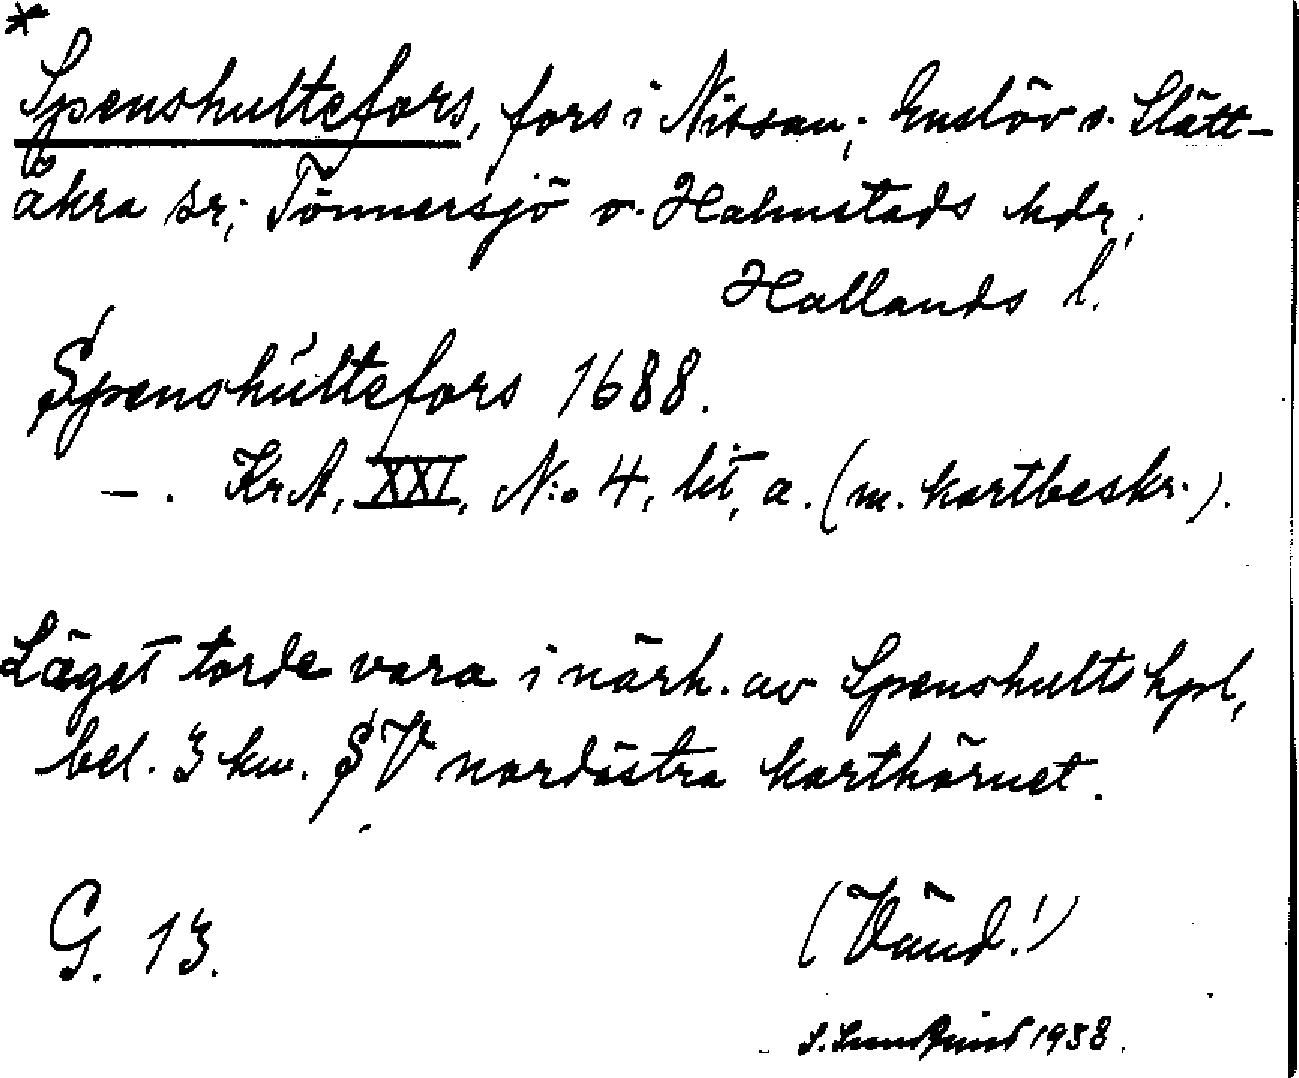 *
Spenshultefors, fors i Nissan; Enslöv o. Slätt-
åkra sr; Tönnersjö o. Halmstads hdr,
Hallands l.
Spenshúltefors 1688.
—. KrA, XXI, N:o 4, lit, a. (m. kartbeskr.).
Läget torde vara i närh. av Spenshults hpl,
bel. 3 km. SV nordöstra karthörnet.
G. 13.
(Vänd!)
S. 1938.